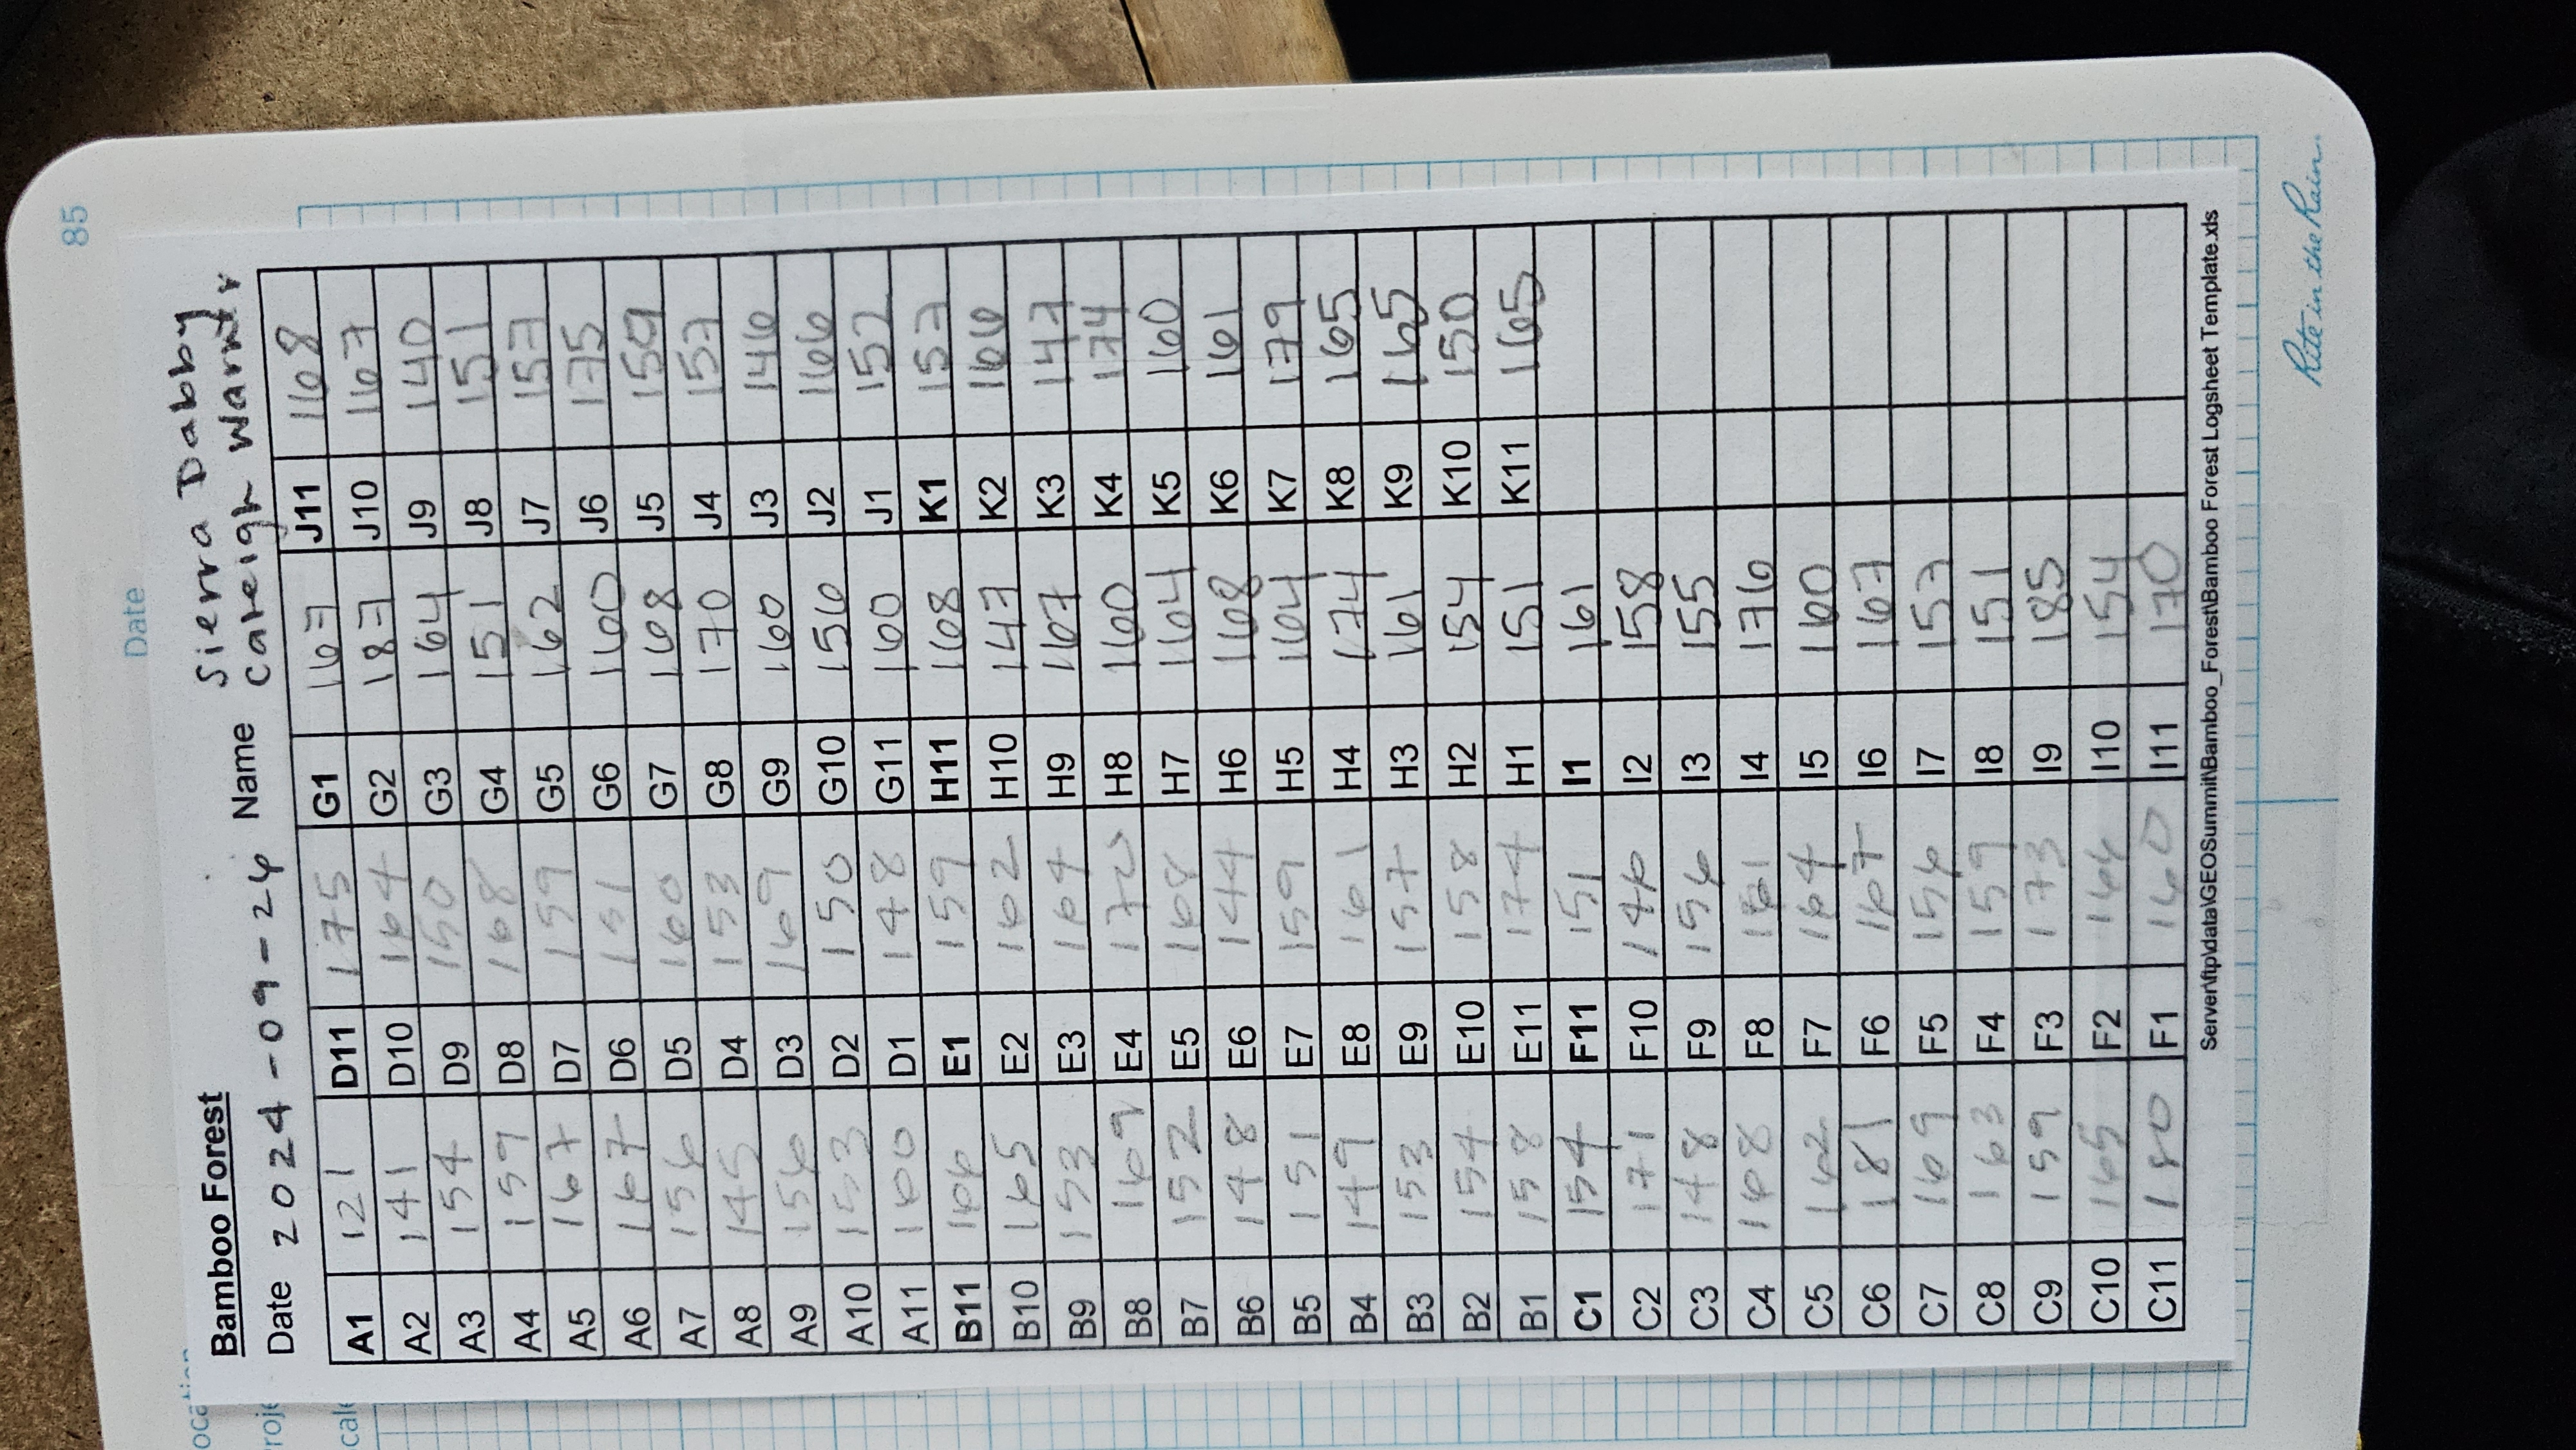 85
Date
Bamboo Forest
Date 2024-09-24 Name Sierra Dabby
Caleigh Warner
A1 121 D11 175 G1 167 J11 168
A2 141 D10 164 G2 187 J10 167
A3 154 D9 150 G3 164 J9 140
A4 159 D8 168 G4 151 J8 151
A5 167 D7 159 G5 162 J7 157
A6 167 D6 151 G6 160 J6 175
A7 156 D5 160 G7 168 J5 159
A8 145 D4 153 G8 170 J4 157
A9 156 D3 169 G9 160 J3 146
A10 153 D2 150 G10 156 J2 166
A11 160 D1 148 G11 160 J1 152
B11 166 E1 159 H11 168 K1 157
B10 165 E2 162 H10 147 K2 166
B9 153 E3 164 H9 167 K3 147
B8 169 E4 170 H8 160 K4 174
B7 152 E5 168 H7 164 K5 160
B6 148 E6 144 H6 168 K6 161
B5 151 E7 159 H5 164 K7 179
B4 149 E8 161 H4 174 K8 165
B3 153 E9 157 H3 161 K9 165
B2 154 E10 158 H2 154 K10 150
B1 158 E11 174 H1 151 K11 165
C1 154 F11 151 I1 161
C2 171 F10 146 I2 158
C3 148 F9 156 I3 155
C4 168 F8 161 I4 176
C5 162 F7 164 I5 160
C6 181 F6 167 I6 167
C7 169 F5 156 I7 157
C8 163 F4 159 I8 151
C9 159 F3 173 I9 185
C10 165 F2 166 I10 154
C11 180 F1 160 I11 170
Server\ftp\data\GEOSummit\Bamboo_Forest\Bamboo Forest Logsheet Template.xls
Rite in the Rain